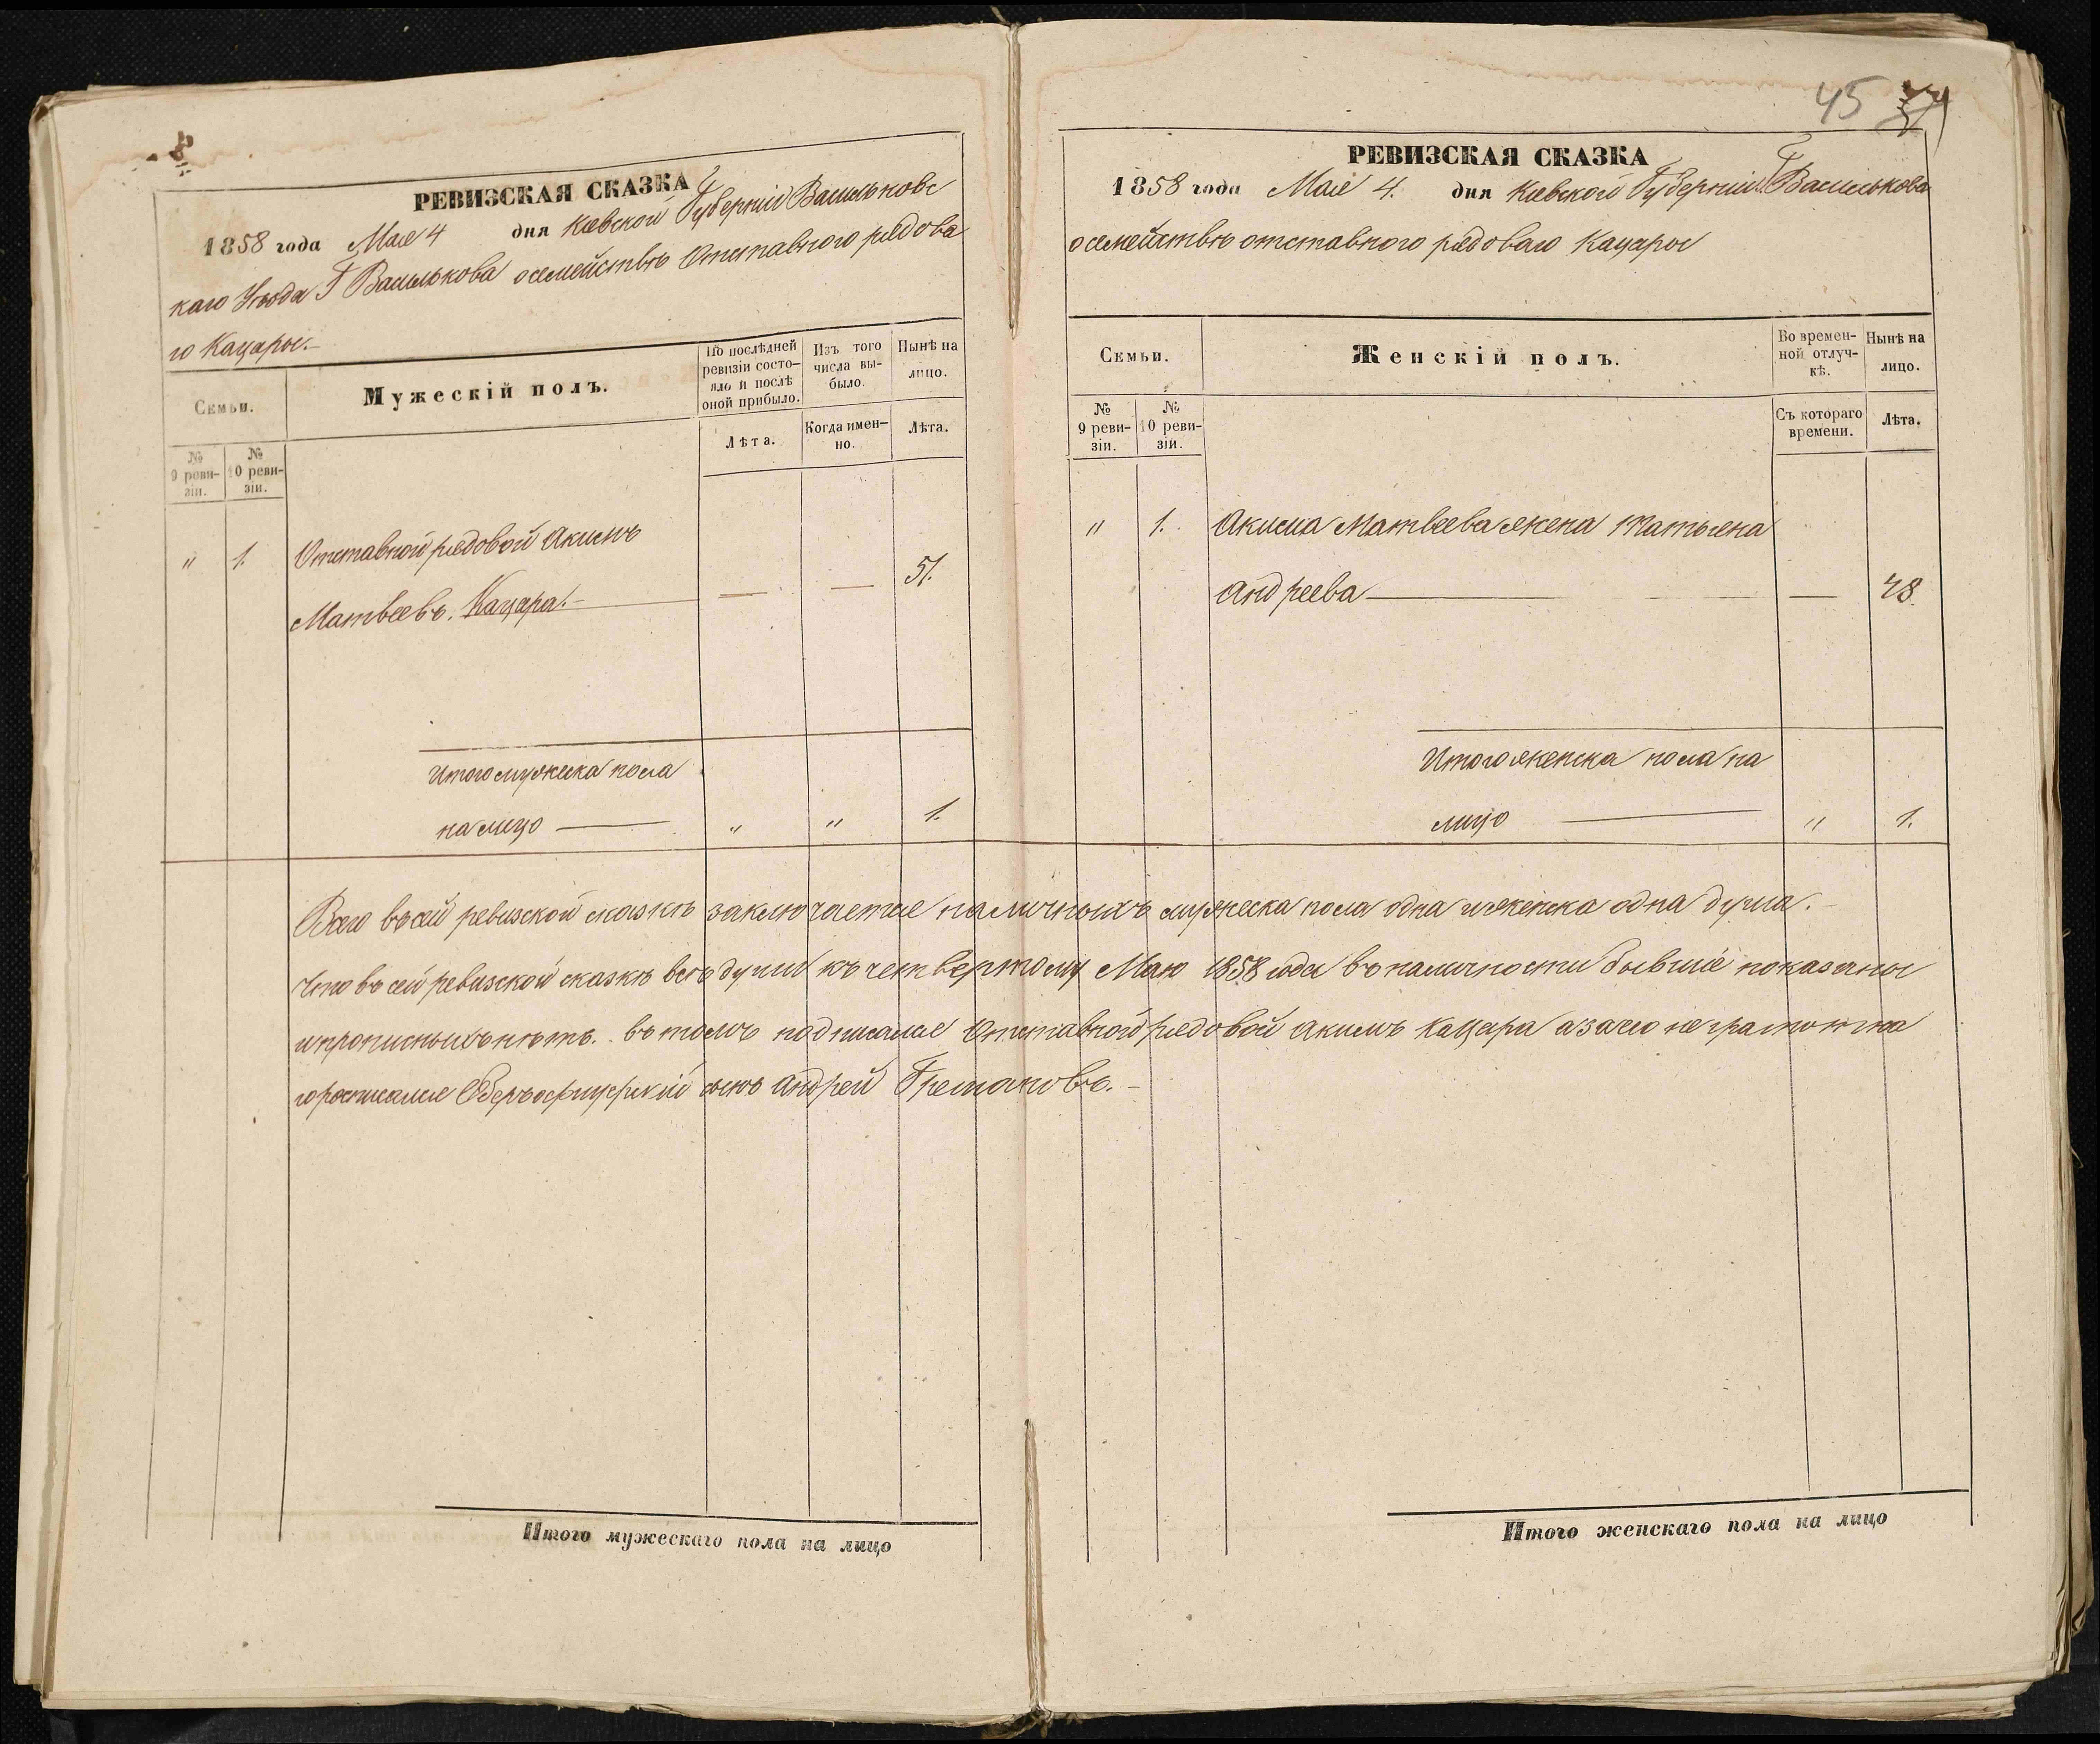 РЕВИЗСКАЯ СКАЗКА
1858 года Мая 4 дня Кіевской Губерніи Васильковс
каго Уѣзда Г Василькова осемействѣ Отставного рядова
го Кацары.—
Семьи.
Мужескій полъ.
По послѣдней ревизіи состо-
яло и послѣ
оной прибыло.
Изъ того
числа вы-
было.
Нынѣ на
лицо.
№
9 реви-
зіи.
№
10 реви-
зіи.
Лѣта.
Когда имен-
но.
Лѣта.
" 1. Отставной рядовой Акимъ
Матвеевъ. Кацара.— — — 51.
Итого мужеска пола
на лицо — " " 1.
45
РЕВИЗСКАЯ СКАЗКА
1858 года Мая 4. дня Кіевской Губерніи Г Василькова
осемействѣ отставного рядоваго Кацары
Семьи.
Женскій полъ.
Во времен-
ной отлуч-
кѣ.
Нынѣ на
лицо.
№
9 реви-
зіи.
№
10 реви-
зіи.
Съ котораго
времени.
Лѣта.
" 1. Акима Матвеева жена Татьяна
Андреева — — 48.
Итого женска пола на
лицо — " 1.
Всего въ сей ревизской сказкѣ заключается наличныхъ мужеска пола одна и женска одна душа.—
Что въ сей ревизской сказкѣ всѣ души къ четвертому Маю 1858 года въ наличности бывшіе показаны
и прописныхъ нѣтъ. въ томъ подписался Отставной рядовой Акимъ Кацара а за его неграмотна
го росписался Оберъофицерскій сынъ Андрей
Итого мужескаго пола на лицо
Итого женскаго пола на лицо